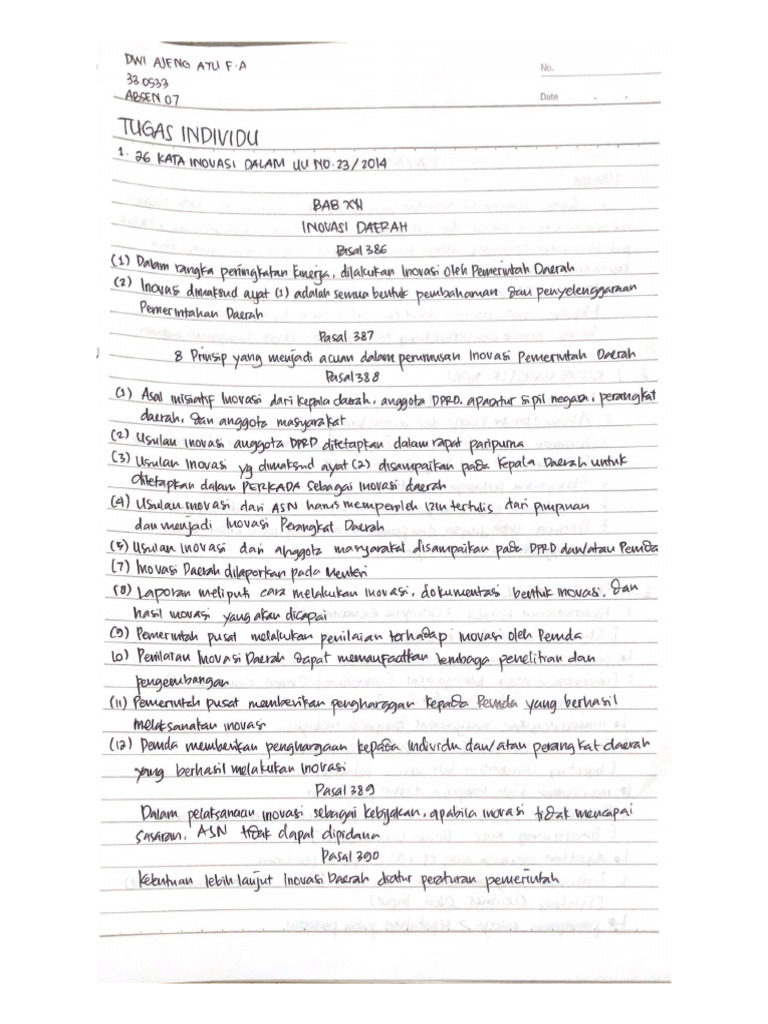 DWI AJENG AYU F.A
330533
ABSEN 07
No.
Date
TUGAS INDIVIDU
1. 26 KATA INOVASI DALAM UU NO.23/2014
BAB XXI
INOVASI DAERAH
Pasal 386
(1) Dalam rangka peningkatan kinerja, dilakukan Inovasi oleh Pemerintah Daerah
(2) Inovasi dimaksud ayat (1) adalah semua bentuk pembaharuan dan penyelenggaraan
Pemerintahan Daerah
Pasal 387
8 Prinsip yang menjadi acuan dalam perumusan Inovasi Pemerintah Daerah
Pasal 388
(1) Asal inisiatif Inovasi dari kepala daerah, anggota DPRD, aparatur sipil negara, perangkat
daerah, dan anggota masyarakat
(2) Usulan inovasi anggota DPRD ditetapkan dalam rapat paripurna
(3) Usulan Inovasi yg dimaksud ayat (2) disampaikan pada Kepala Daerah untuk
ditetapkan dalam PERKADA sebagai inovasi daerah
(4) Usulan inovasi dari ASN harus memperoleh izin tertulis dari pimpinan
dan menjadi Inovasi Perangkat Daerah
(5) Usulan Inovasi dari anggota masyarakat disampaikan pada DPRD dan/atau Pemda
(7) Inovasi Daerah dilaporkan pada Menteri
(8) Laporan meliputi cara melakukan inovasi, dokumentasi bentuk inovasi, dan
hasil inovasi yang akan dicapai
(9) Pemerintah pusat melakukan penilaian terhadap inovasi oleh Pemda
10) Penilaian Inovasi Daerah dapat memanfaatkan lembaga penelitian dan
pengembangan
(11) Pemerintah pusat memberikan penghargaan kepada Pemda yang berhasil
melaksanakan inovasi
(12) Pemda memberikan penghargaan kepada individu dan/atau perangkat daerah
yang berhasil melakukan inovasi
Pasal 389
Dalam pelaksanaan inovasi sebagai kebijakan, apabila inovasi tidak mencapai
sasaran, ASN tidak dapat dipidana
Pasal 390
Ketentuan lebih lanjut Inovasi Daerah diatur peraturan pemerintah